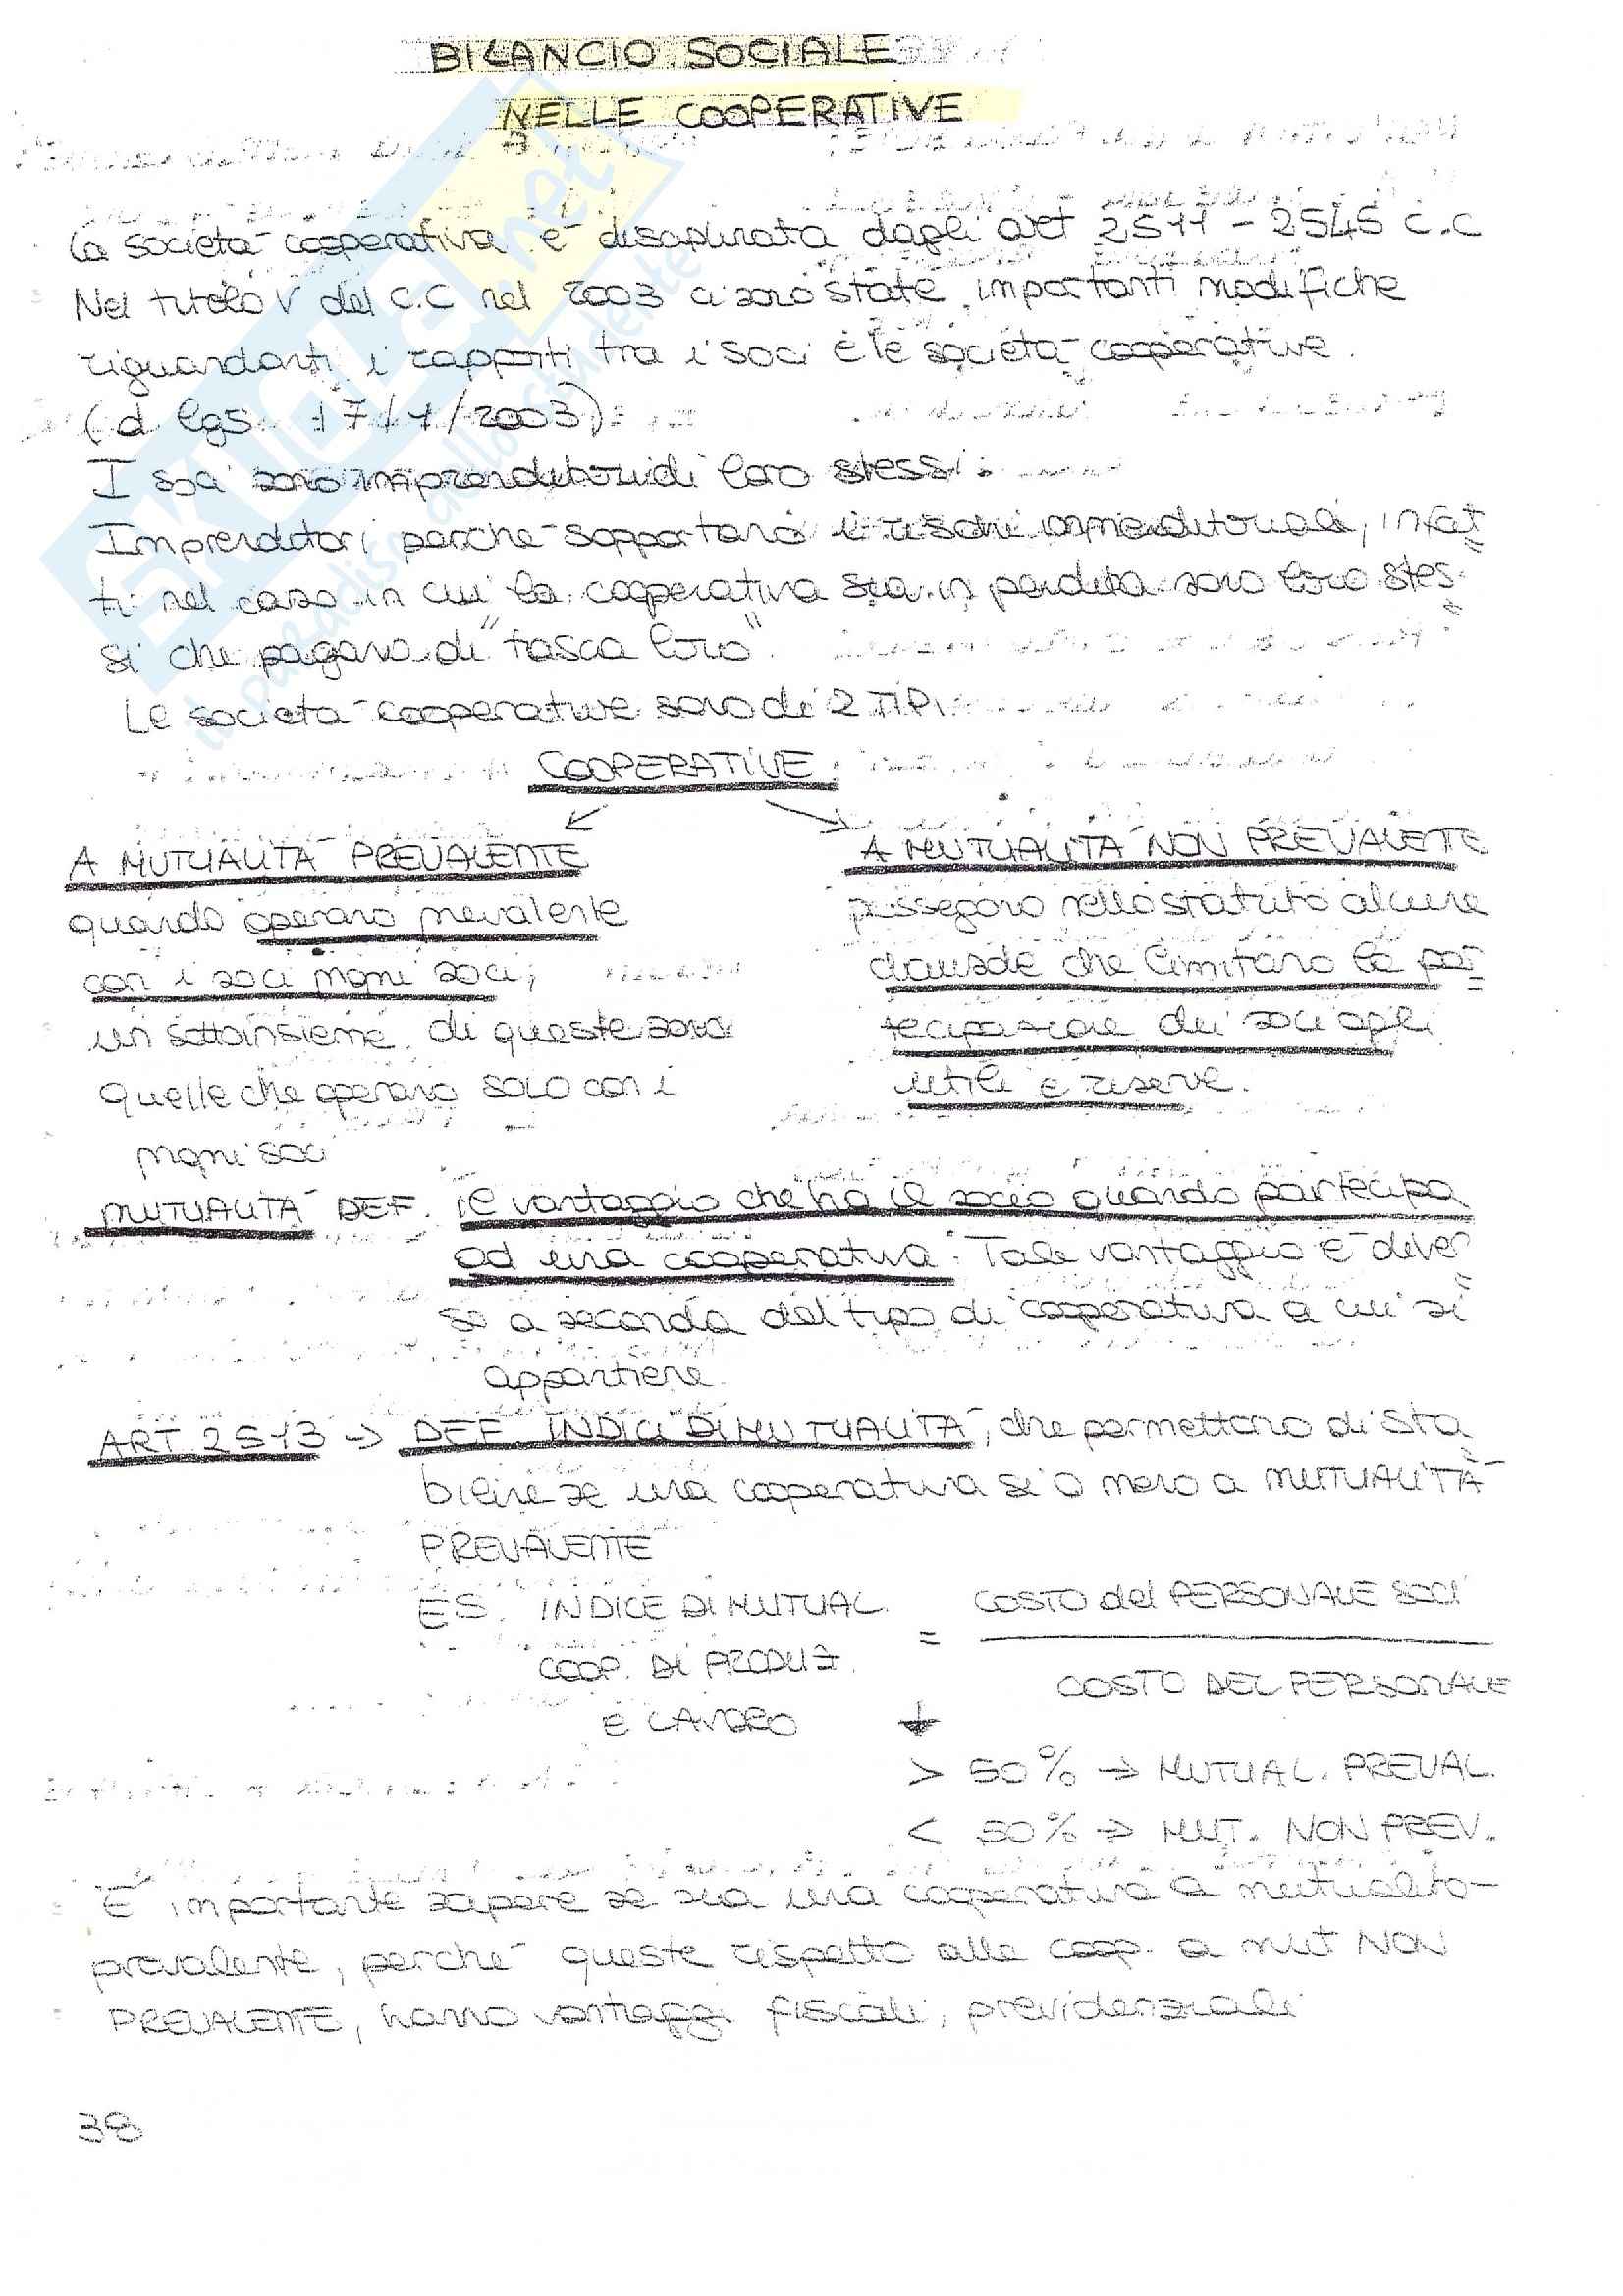 BILANCIO SOCIALE
NELLE COOPERATIVE
La società cooperativa è disciplinata dagli art 2511 - 2545 C.C
Nel titolo V del C.C nel 2003 ci sono state importanti modifiche
riguardanti i rapporti tra i soci e le società cooperative.
(d lgs 17/1/2003)
I soci sono imprenditori di loro stessi.
Imprenditori perchè sopportano i rischi imprenditoriali, infat
ti nel caso in cui la cooperativa sia in perdita sono loro stes
si che pagano di "tasca loro".
Le società cooperative sono di 2 TIPI
COOPERATIVE
A MUTUALITÀ PREVALENTE
quando operano prevalente
con i soci propri soci,
un sottoinsieme di queste sono
quelle che operano solo con i
propri soci
A MUTUALITÀ NON PREVALENTE
posseggono nello statuto alcune
clausole che limitano la par
tecipazione dei soci agli
utili e riserve.
MUTUALITÀ DEF. il vantaggio che ha il socio quando partecipa
ad una cooperativa. Tale vantaggio è diver
so a seconda del tipo di cooperativa a cui si
appartiene.
ART 2513 → DEF. INDICI DI MUTUALITÀ, che permettono di sta
bilire se una cooperativa si o meno a MUTUALITÀ
PREVALENTE
ES. INDICE DI MUTUAL. = COSTO del PERSONALE SOCI
COOP. DI PRODUZ.
COSTO DEL PERSONALE
E LAVORO ↓
> 50% → MUTUAL. PREVAL.
< 50% → MUT. NON PREV.
È importante sapere se sia una cooperativa a mutualità-
prevalente, perchè queste rispetto alle coop. a mut NON
PREVALENTE, hanno vantaggi fiscali, previdenziali
38
SKUOLA.net
il paradiso dello studente